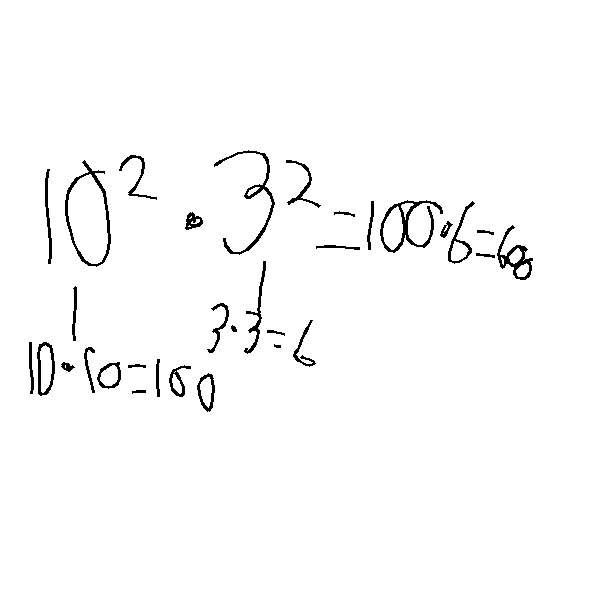 10² · 3² = 100 · 6 = 600
10 · 10 = 100
3 · 3 = 6